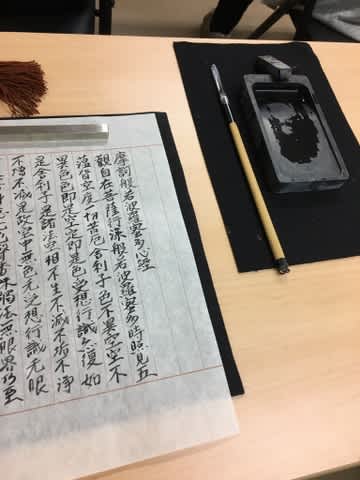 摩訶般若波羅蜜多心經
觀自在菩薩行深般若波羅蜜多時照見五
蘊皆空度一切苦厄舍利子色不異空空不
異色色即是空空即是色受想行識亦復如
是舍利子是諸法空相不生不滅不垢不淨
不增不減是故空中無色无受想行識无眼
香味觸法無眼界乃至